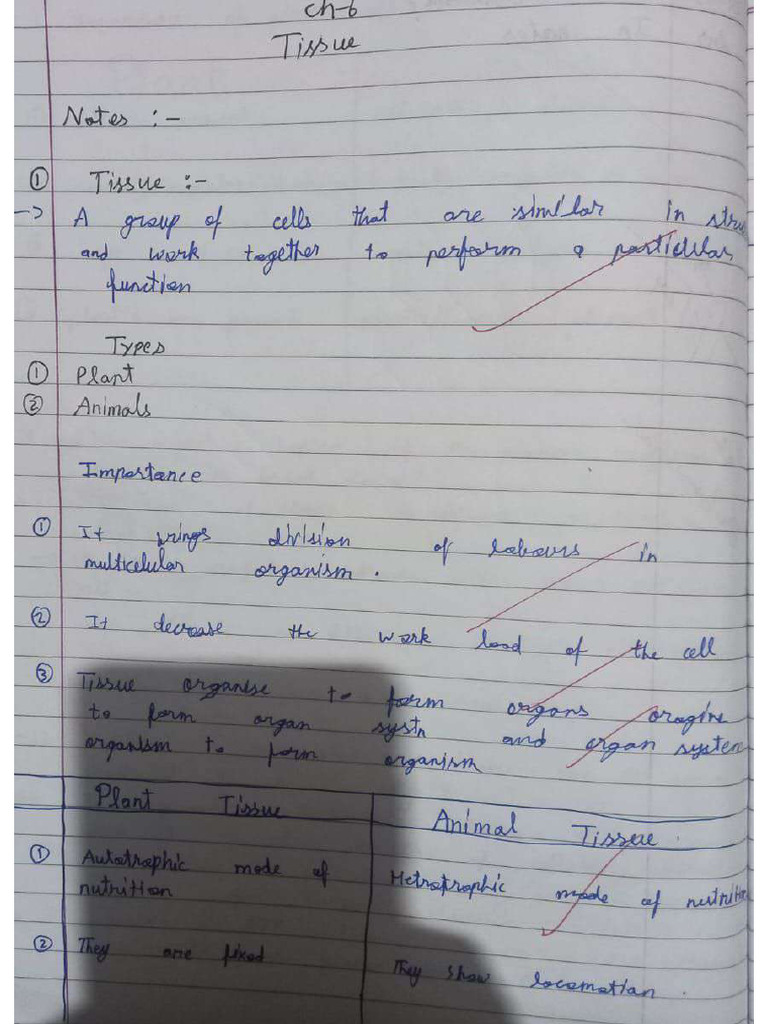 Ch-6
Tissue
Notes :-
① Tissue :-
-> A group of cells that are similar in stru
and work together to perform a particular
function
Types
① Plant
② Animals
Importance
① It brings division of labours in
multicelular organism.
② It decrease the work load of the cell
③ Tissue organise to form organs oragins
to form organ systn and organ system
organism to form organism
Plant Tissue Animal Tissue
① Autotrophic mode of Hetrotrophic mode of nutrition
nutrition
② They are fixed They show locomotion.